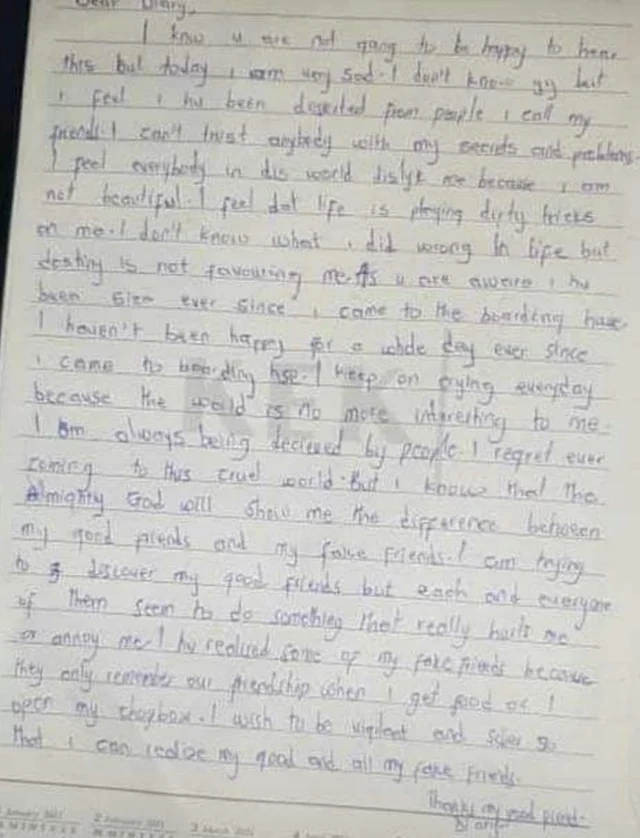 Dear Diary,
I know u are not going to be happy to hear
this but today i am very sad. I don't know yy but
i feel i hv been deserted from people i call my
friends. I can't trust anybody with my secrets and problems.
I feel everybody in dis world dislyk me because i am
not beautiful. I feel dat life is playing dirty tricks
on me. I don't know what i did wrong in life but
destiny is not favouring me. As u are aware i hv
been ever since i came to the boarding
I haven't been happy for a whole day ever since
i came to boarding hse. I keep on crying everyday
because the world is no more interesting to me.
I am always being decieved by people. I regret ever
coming to this cruel world. But i know that the
Almighty God will show me the difference between
my good friends and my false friends. I am trying
to discover my good friends but each and everyone
of them seem to do something that really hurts me
or annoy me. I hv realised some of my fake friends because
they only remember our friendship when i get food or I
open my chopbox. I wish to be vigilant and so
that i can realize my good and all my fake friends.
Thanks my good friend.
Diary
KEK